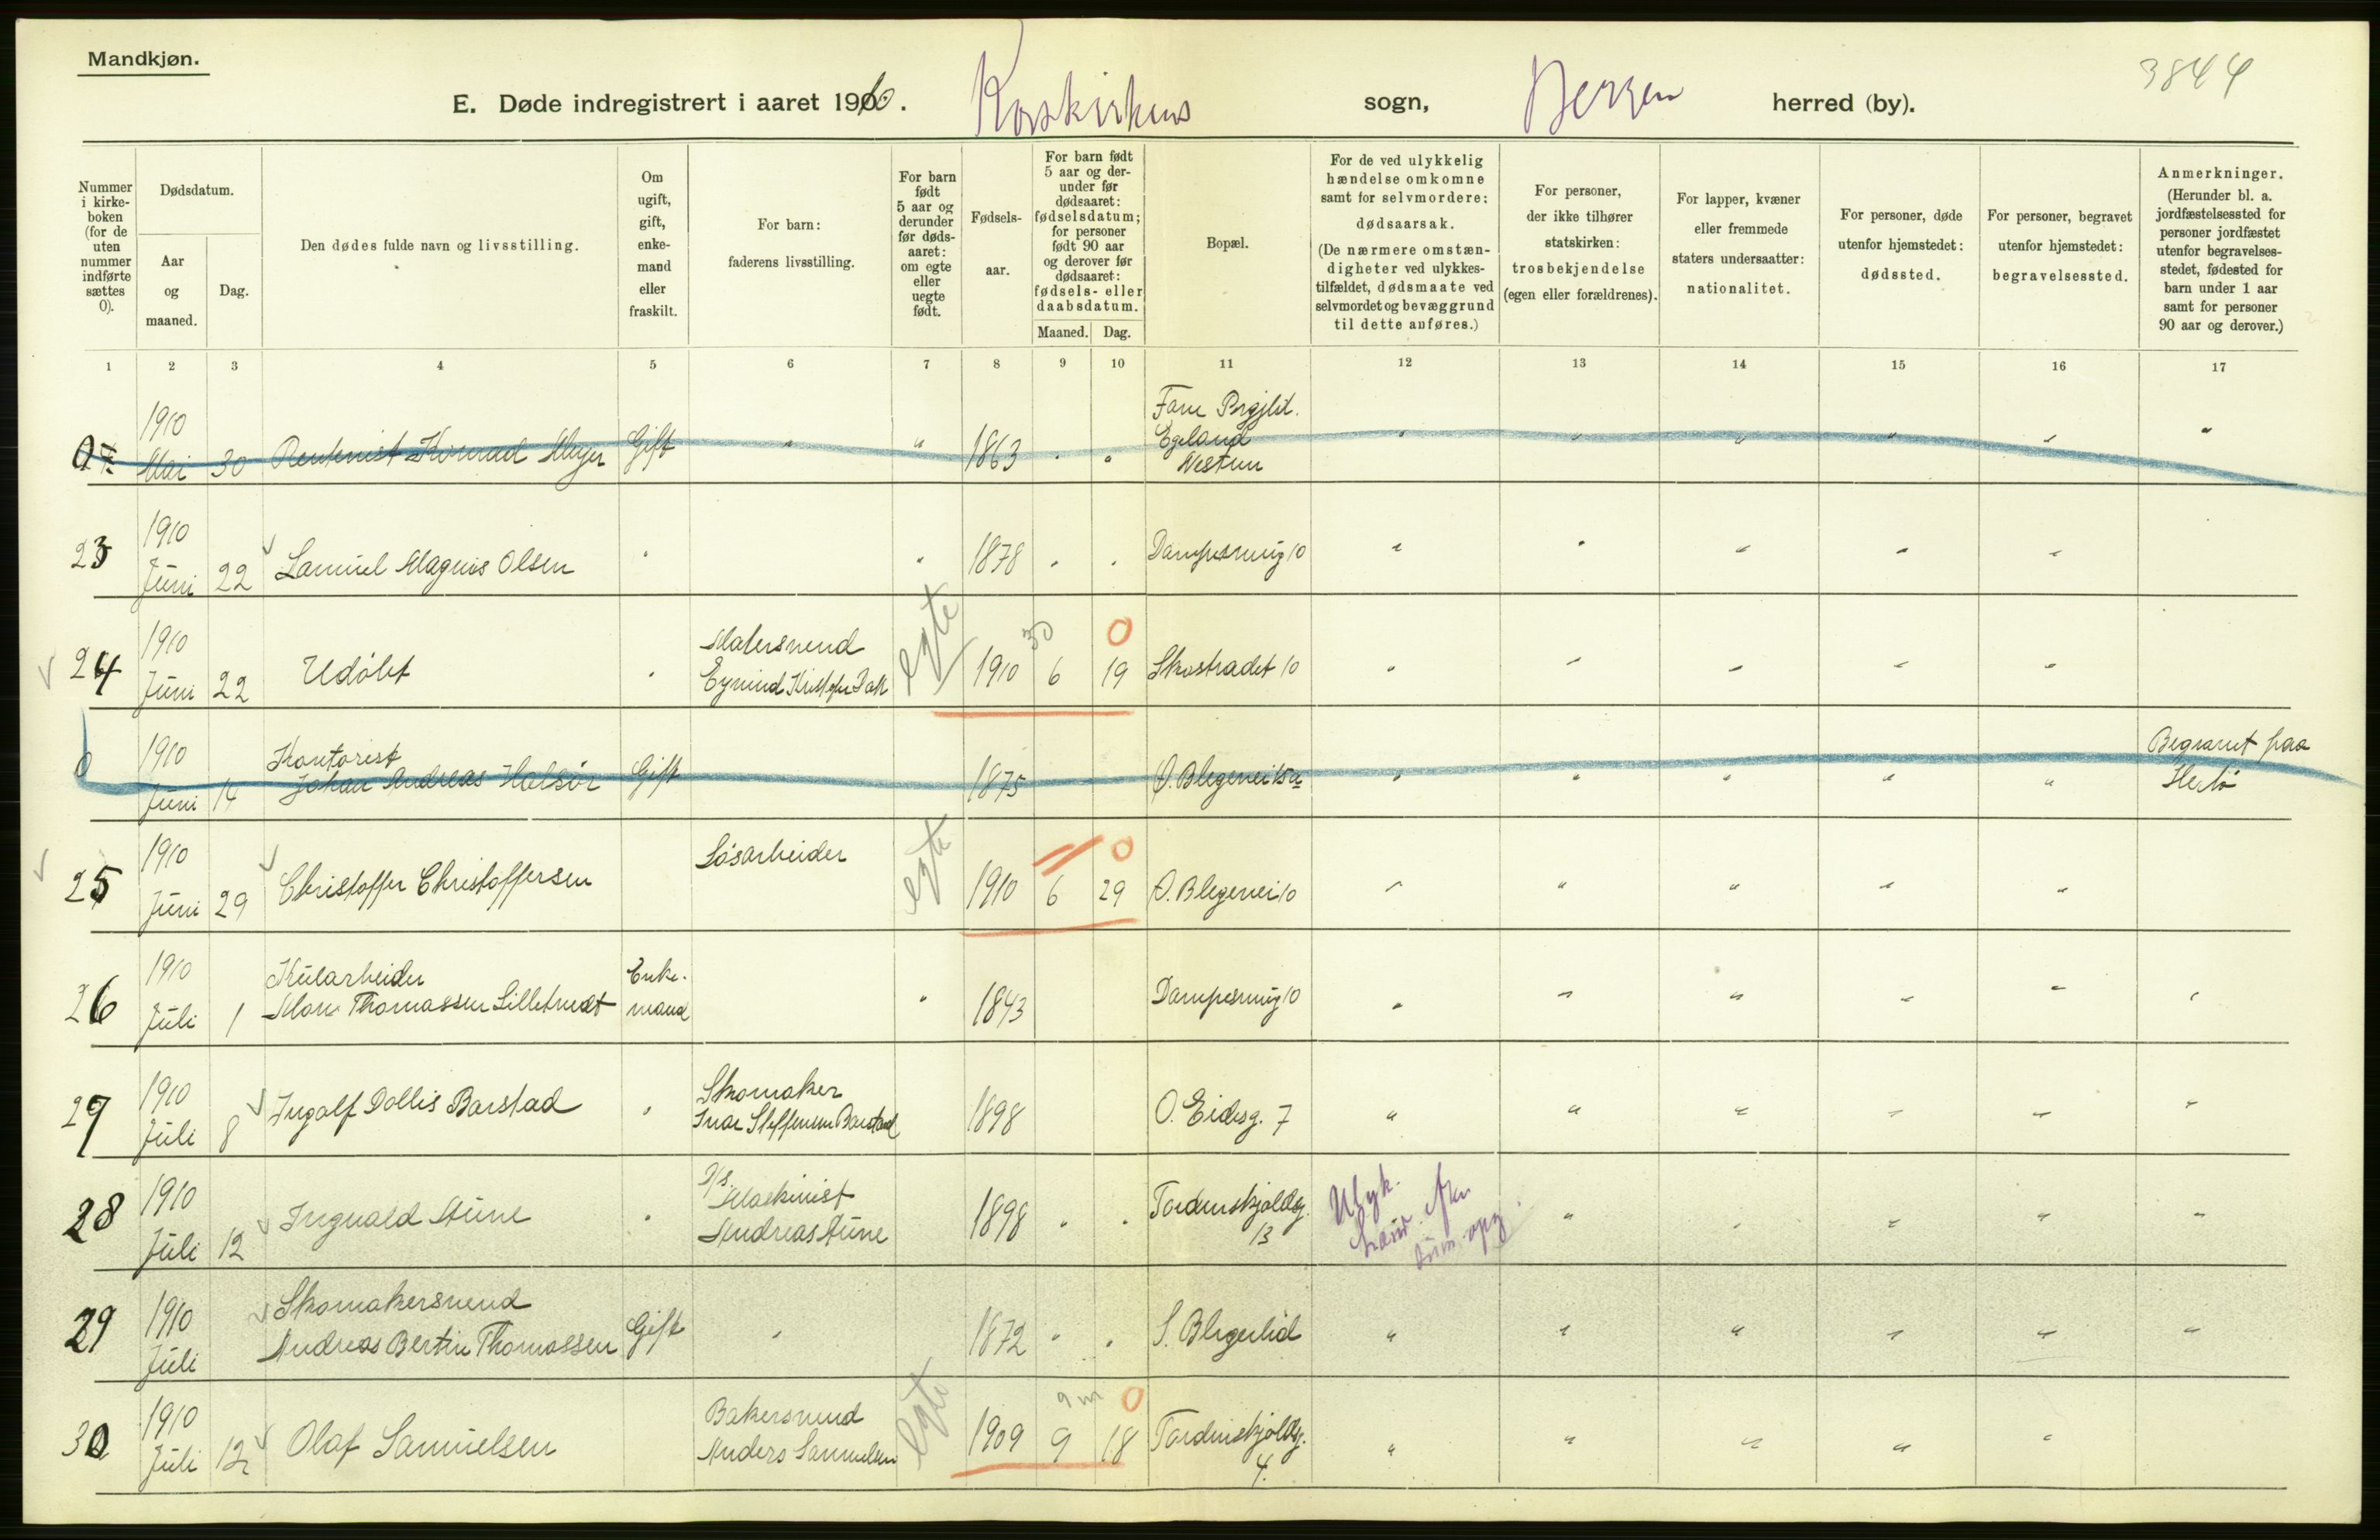 Mandkjøn.
3844
E. Døde indregistrert i aaret 1910. Korskirkens sogn, Bergen herred (by).
Nummer i kirke-boken (for de uten nummer indførte sættes 0).
Dødsdatum.
Aar og maaned.
Dag.
Den dødes fulde navn og livsstilling.
Om ugift, gift, enke-mand eller fraskilt.
For barn: faderens livsstilling.
For barn født 5 aar og derunder før døds-aaret: om egte eller uegte født.
Fødsels-aar.
For barn født 5 aar og der-under før dødsaaret: fødselsdatum; for personer født 90 aar og derover før dødsaaret: fødsels- eller daabsdatum.
Maaned. Dag.
Bopæl.
For de ved ulykkelig hændelse omkomne samt for selvmordere: dødsaarsak. (De nærmere omstæn-digheter ved ulykkes-tilfældet, dødsmaate ved selvmordet og bevæggrund til dette anføres.)
For personer, der ikke tilhører statskirken: trosbekjendelse (egen eller forældrenes).
For lapper, kvæner eller fremmede staters undersaatter: nationalitet.
For personer, døde utenfor hjemstedet: dødssted.
For personer, begravet utenfor hjemstedet: begravelsessted.
Anmerkninger. (Herunder bl. a. jordfæstelsessted for personer jordfæstet utenfor begravelses-stedet, fødested for barn under 1 aar samt for personer 90 aar og derover.)
1 2 3 4 5 6 7 8 9 10 11 12 13 14 15 16 17
1910 Mai 30 Rentenist Konrad Meyer Gift " " 1863 " " Fane Prgjld. Egeland " " " " " "
23 1910 Juni 22 Samuel Magnus Olsen " " 1878 " " Dampsmug 10 " " " " "
24 1910 Juni 22 Udøbt " Malersvend egte 1910 6 19 0 Skostrædet 10 " " " " "
0 1910 Juni 14 Kontorist Johan Andreas Gift 1875 Ø. Blegevei 15a " " " " " Begravet paa Herlø
25 1910 Juni 29 Christoffer Christoffersen Løsarbeider egte 1910 6 29 0 Ø. Blegevei 10 " " " " "
26 1910 Juli 1 Kularbeider Mons Thomassen Enke-mand " 1843 Dampsmug 10 " " " " " "
27 1910 Juli 8 Ingolf Dollis Barstad " Skomaker Ivar Steffensen Barstad 1898 O. Eidesg. 7 " " " " " "
28 1910 Juli 12 Ingvald Aune " D/s. Maskinist Andreas Aune 1898 " " Tordenskjoldsg. 13 Ulyk. " " " " "
29 1910 Juli Skomakersvend Andreas Bertin Thomassen Gift " 1872 " " S. Blegerlid " " " " " "
30 1910 Juli 12 Olaf Samuelsen Bakersvend Anders Samuelsen egte 1909 9 18 9 m 0 Tordenskjoldsg. 4. " " " " "